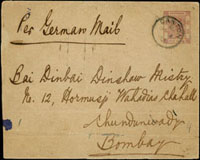 Per German Mail
Bai Dinbai Dinshaw Mistry
No. 12, Hormusji Wahadias Chahall
Chundunwady
Bombay